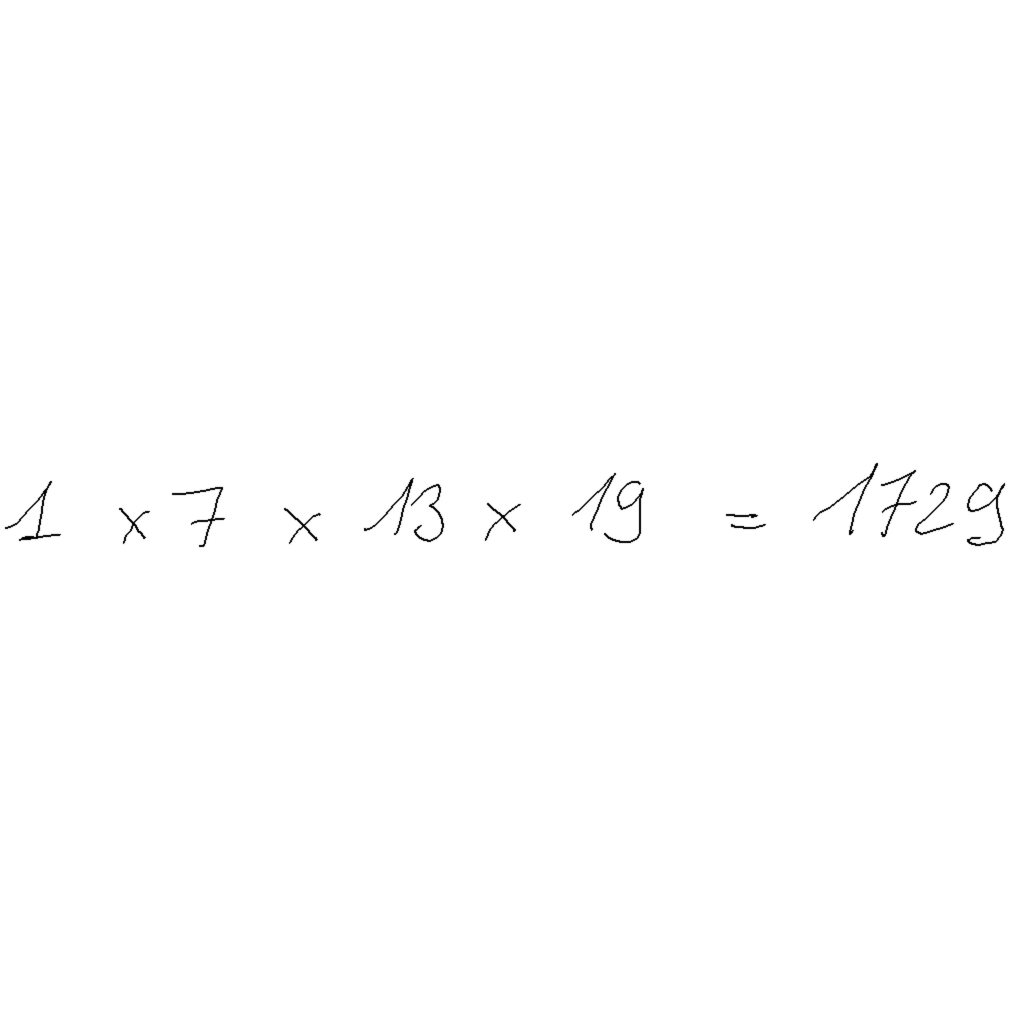 1 × 7 × 13 × 19 = 1729